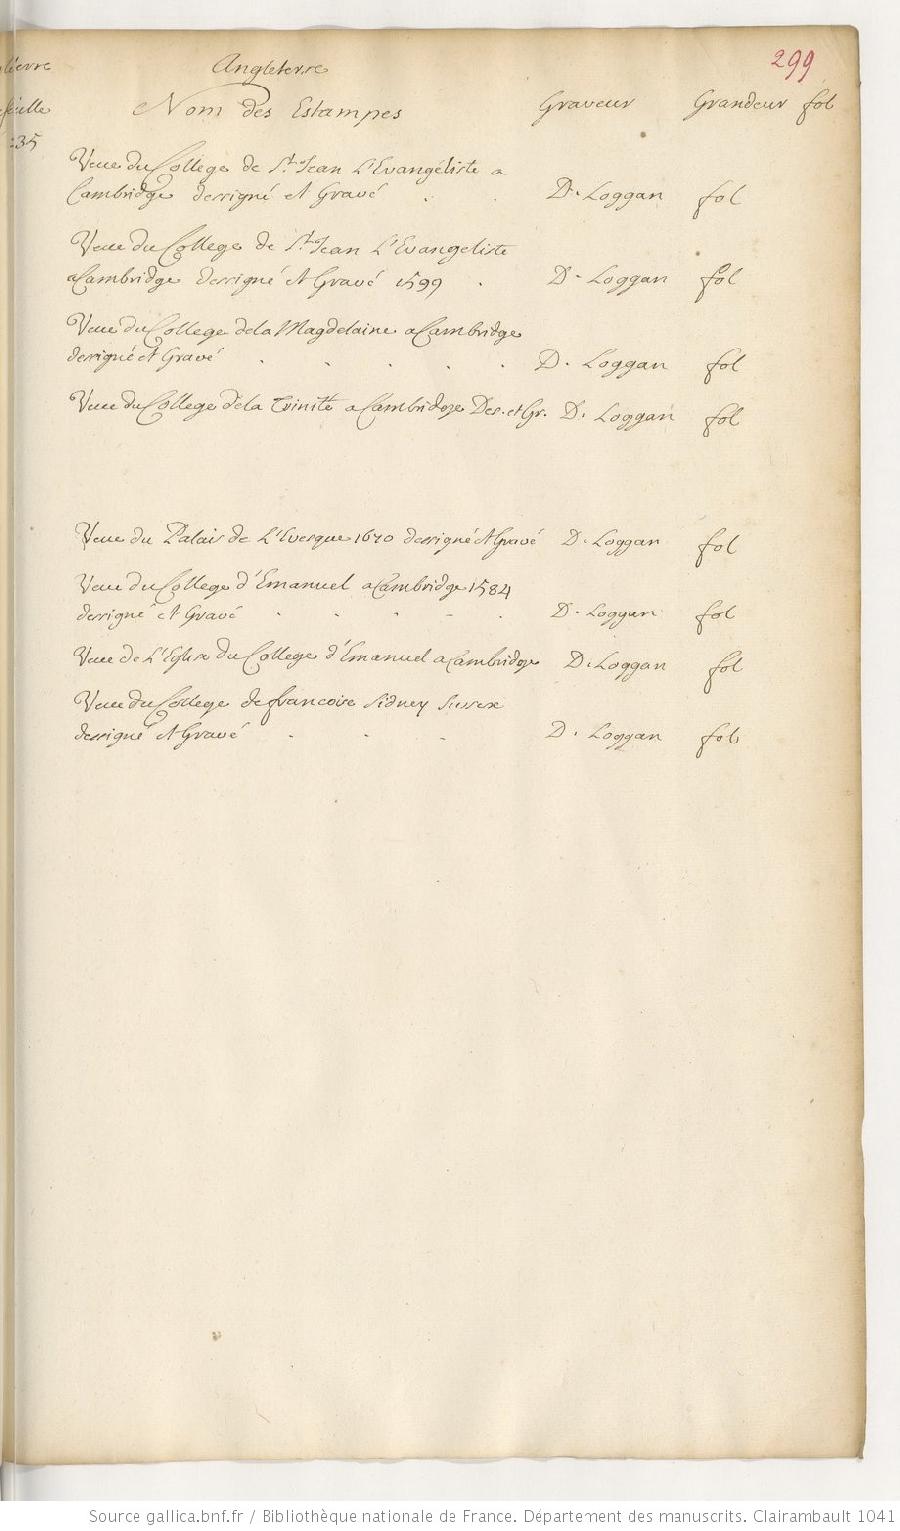 299
Angleterre
Nom des Estampes Graveur Grandeur fol
:35
Veue du College de St. Jean L'Evangéliste a
Cambridge dessigné et Gravé . . D. Loggan fol
Veue du College de St. Jean L'Evangeliste
a Cambridge dessigné et Gravé 1599 . D. Loggan fol
Veue du College dela Magdelaine a Cambridge
dessigné et Gravé . . . . . D. Loggan fol
Veue du College dela Trinité a Cambridge Des. et Gr. D. Loggan fol
Veue du Palais de L'Evesque 1670 dessigné et Gravé D. Loggan fol
Veue du College d'Emanuel a Cambridge 1584
dessigné et Gravé . . . . . D. Loggan fol
Veue de L'Eglise du College d'Emanuel a Cambridge D. Loggan fol
Veue du College de francoise Sidney Sussex
dessigné et Gravé . . . D. Loggan fol
Source gallica.bnf.fr / Bibliothèque nationale de France. Département des manuscrits. Clairambault 1041